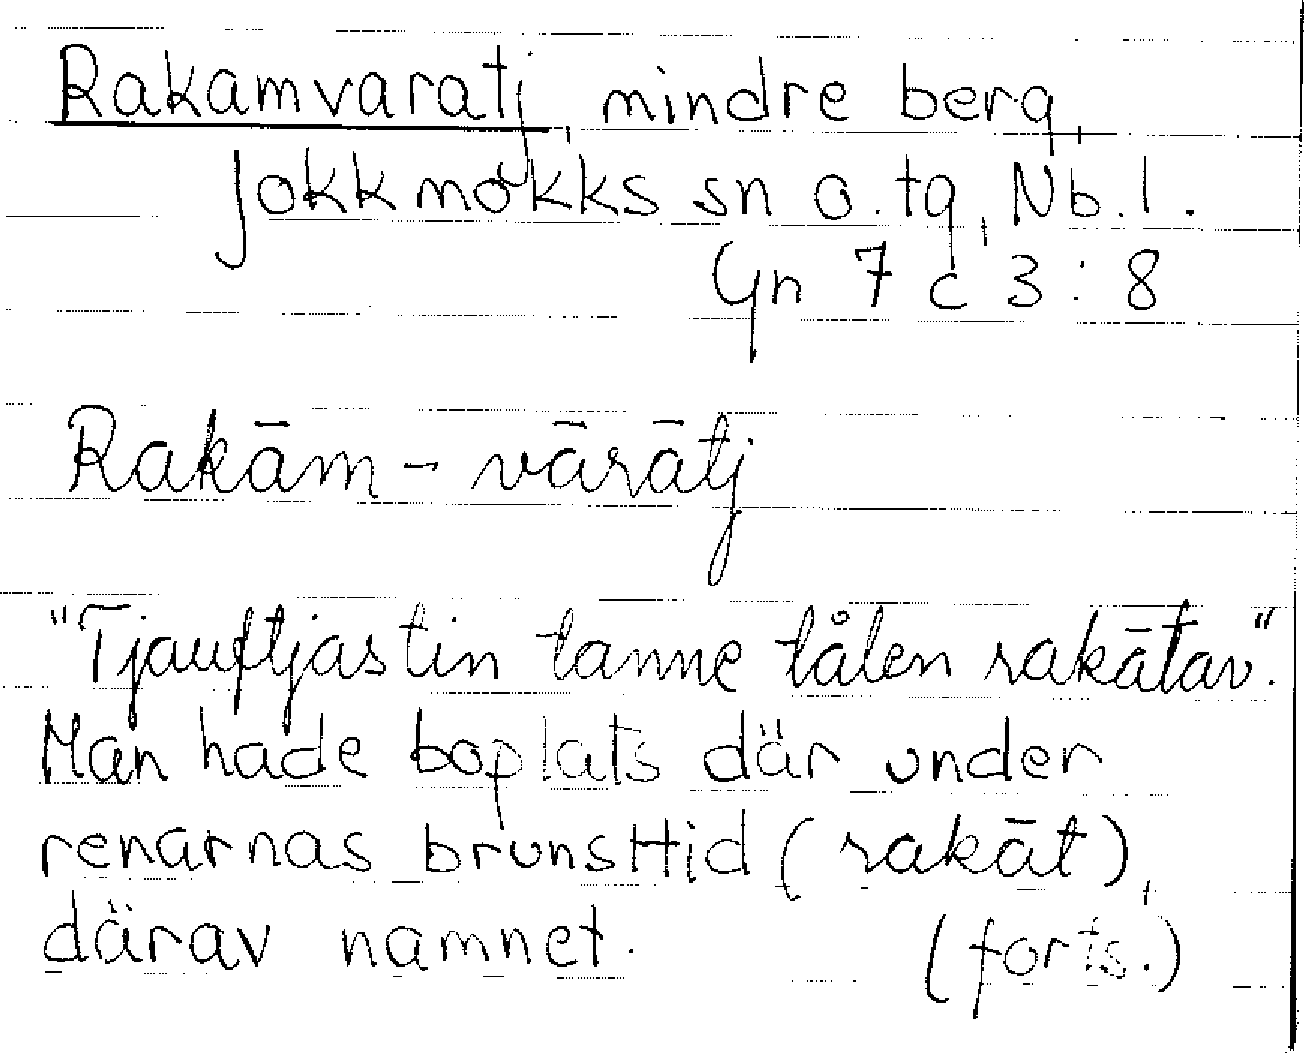 Rakamvaratj, mindre berg,
Jokkmokks sn o. tg, Nb. l.
Gn 7 c 3 : 8
Rakām - vārātj
"Tjauftjastin tanne tålen rakātav".
Man hade boplats där under
renarnas brunsttid (rakāt),
därav namnet. (forts.)